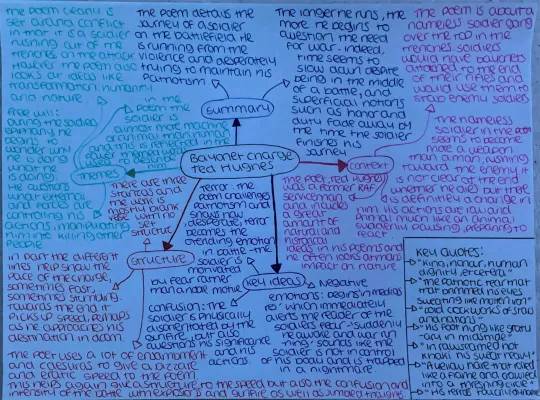 The poem clearly is
set around conflict
in that it is a soldier
rushing out of the
trenches on the attack
However the poem also
looks at ideas like
transformation, humanity
and nature
free will:
during the soldiers
epiphany he
begins to
wonder why
he is doing
what he
is doing.
He questions
what external
and forces are
controlling his
actions, manipulating
him into killing other
people
in the
poem the
soldier is
almost more machine
or animal than human
and this is reflected in the
themes
The poem details the
journey of a soldier
on the battlefield. He
is running from the
violence and desperately
trying to maintain his
Patriotism
Summary
The longer he runs, the
more he begins to
question the need
for war - indeed,
time seems to
slow down despite
being in the middle
of a battle, and
superficial notions
such as honor and
duty fade away by
the time the soldier
finishes his
journey
The poem is about a
nameless soldier going
over the top in the
trenches soldiers
would have bayonets
attached to the end
of their rifles and
would use them to
stab enemy soldiers
Bayonet charge
Ted Hughes
context
The nameless
soldier in the poem
seems to become
more a weapon
than a man, rushing
toward the enemy it
is not clear at the end
whether he dies but there
is definitely a change in
him His actions are raw and
animal much like an (animal)
suddenly pausing, preparing to
react
The poet, Ted Hughes
was a former RAF
serviceman
and includes
a great
amount of
natural and
historical
ideas in his poems and
he often looks at mans
impact on nature
there are three
stanzas and
the verse is
mostly blank
verse with no
set
structure
Structure
In part the different
lines help show the
pace of the charge,
sometimes fast,
sometimes stumbling.
Towards the end it
picks up speed perhaps
as he approaches his
destination in death
The poet uses a lot of enjambment
and caesuras to give a bizzare
and erratic speed to the poem
This helps again give a structure, to the speed but also the confusion and
intensity of the battle with explosions and gunfire as well as jumbled thoughts
Terror: the
poem conveys
patriotism and
shows raw
desperate, terror
becomes the
overriding emotion
in battle - the
soldier is
motivated
by fear rather
than a noble motive
key ideas
confusion: the
soldier is physically
disorientated by the
gunfire, but also
questions his significance
and his
actions
Negative
emotions: begins in medias
res which immediately
alerts the reader of the
soldiers fear - 'suddenly
he awoke and was run-
ning' sounds like the
soldier is not in control
of his body and is trapped
in a nightmare
Key Quotes:
"King, honour, human
dignity, etcetera"
"The patriotic tear that
had brimmed in his eyes
sweating like molten iron"
"cold clockwork of stars
and nations"
"His foot hung like statu-
ary in midstride"
"raw-seamed hot
khaki his sweat heavy"
"A yellow hare that rolled
like a flame and crawled
into a threshing circle"